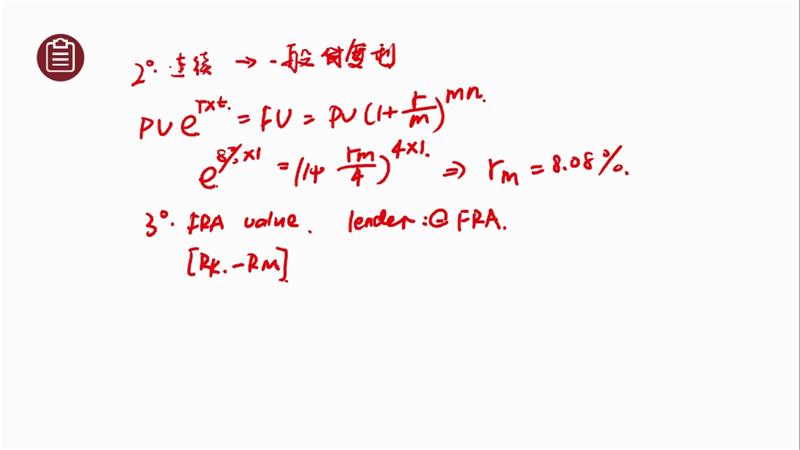 2°. 连续 → 一般付复利
PV e^{r×t} = FV = PV (1+\frac{r}{m})^{mn}.
e^{8%×1} = (1+\frac{rm}{4})^{4×1}. ⇒ rm = 8.08%.
3°. FRA value. lender: ⊖ FRA.
[RK. - RM]